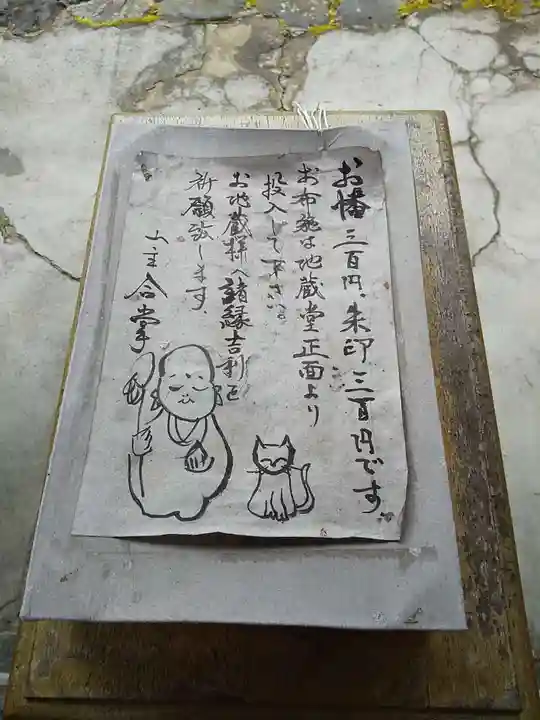 お幡三百円、朱印三百円です。
お布施は地蔵堂正面より
投入して下さい。
お地蔵様へ諸縁吉利を
祈願致します。
山主合掌